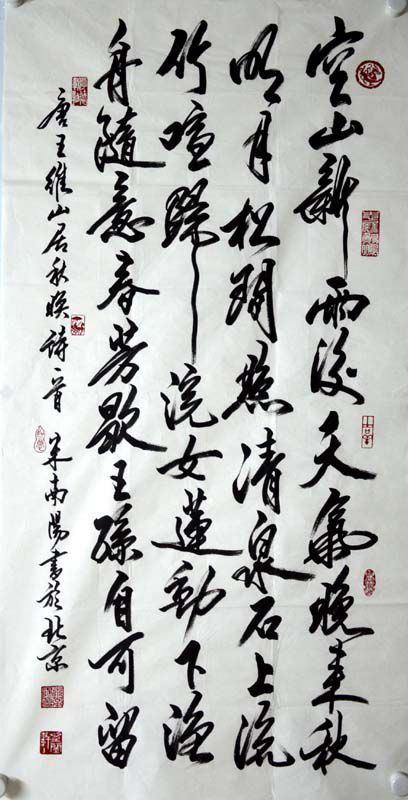 空山新雨後天氣晚来秋
明月松間照清泉石上流
竹喧歸浣女蓮動下漁
舟隨意春芳歇王孫自可留
唐王維山居秋暝詩一首 宋南陽書於北京